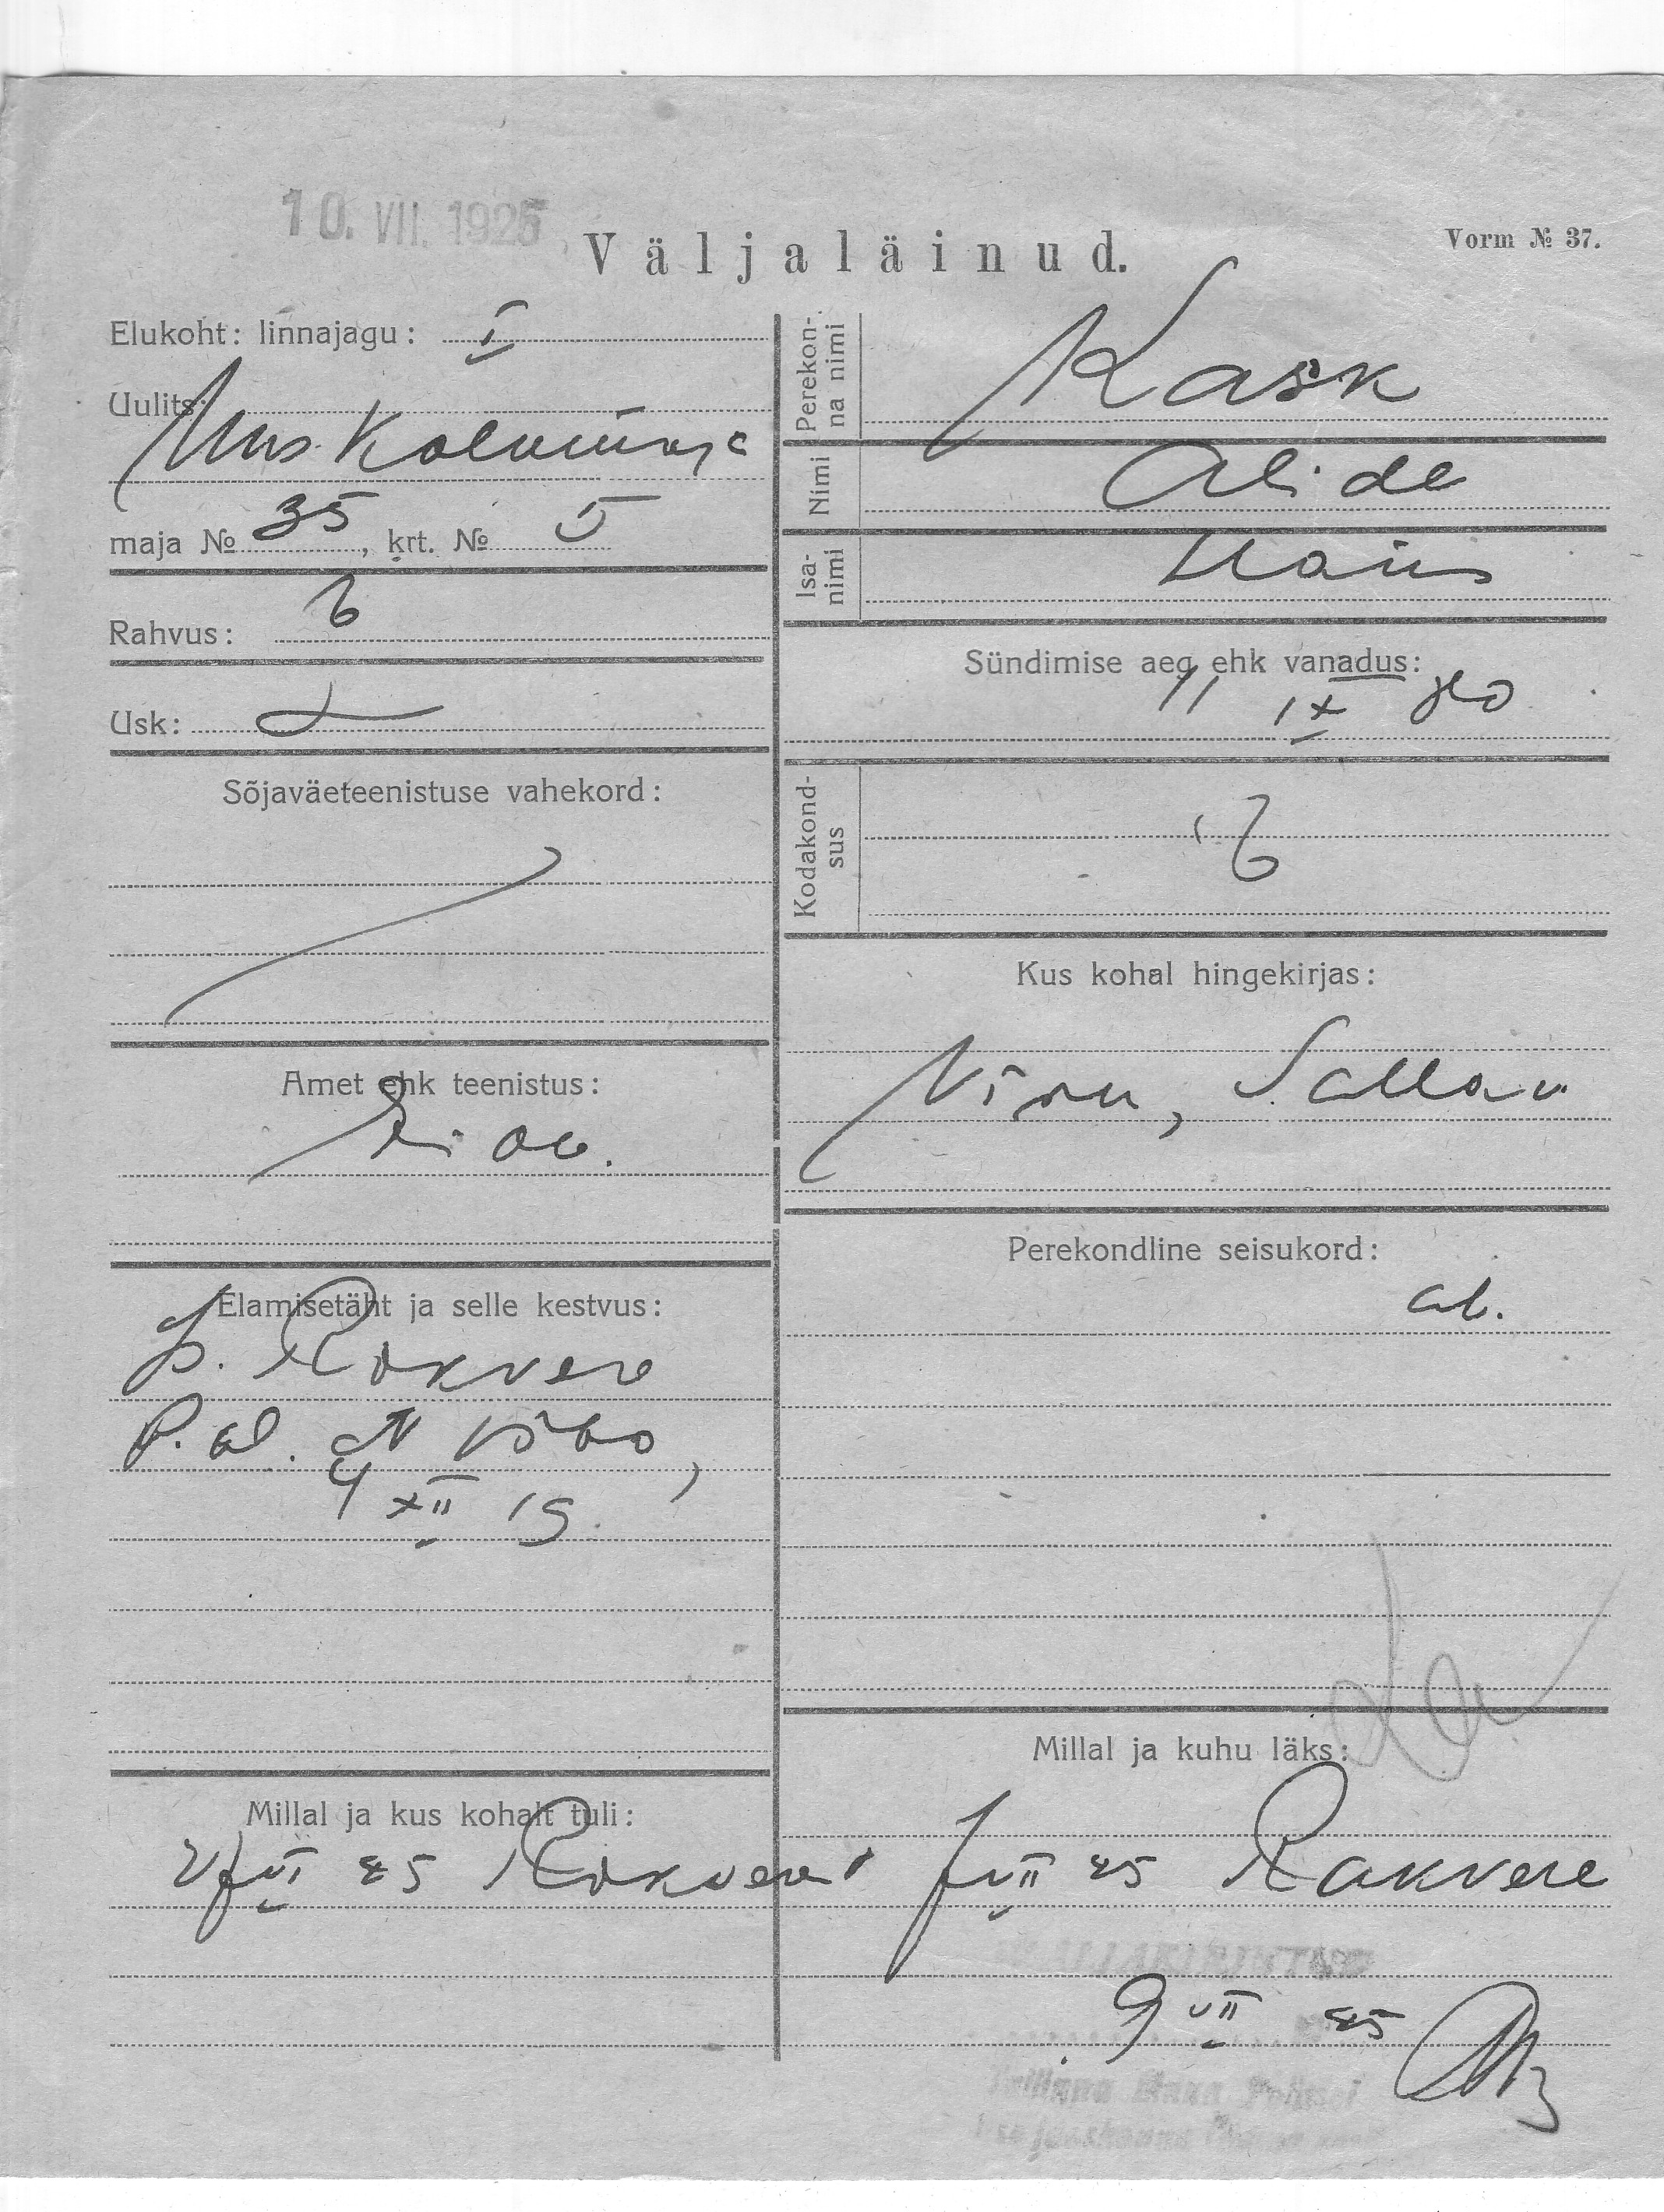 10. VII. 1925
Väljaläinud.
Vorm № 37.
Elukoht: linnajagu: I
Uulits:
Uus Kalamaja
maja № 35, krt. № 5
Rahvus: E
Usk: L
Sõjaväeteenistuse vahekord:
Amet ehk teenistus:
Elamisetäht ja selle kestvus:
P. Rakvere
XII 19.
Millal ja kus kohalt tuli:
VI 25 Rakvere
Perekonna nimi
Kask
Nimi
Alide
Isanimi
Hans
Sündimise aeg ehk vanadus:
11 IX
Kodakondsus
E
Kus kohal hingekirjas:
Viru, Salla v.
Perekondline seisukord:
ab.
Millal ja kuhu läks:
VII 25 Rakvere
9 VII 25
Tallinna Linna Politsei